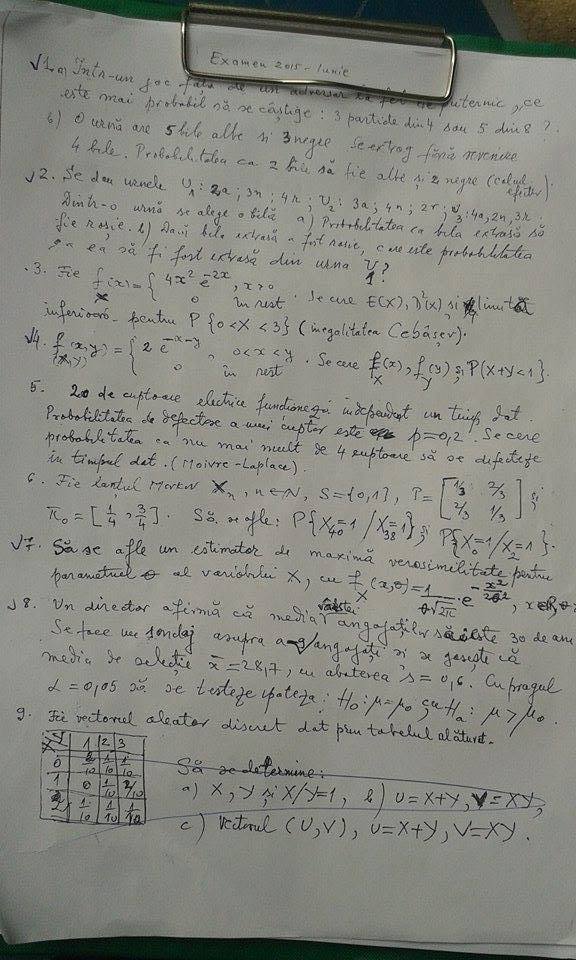 Examen 2015 - Iunie
√1. a) Într-un joc față de un adversar la fel de puternic, ce
este mai probabil să se câștige: 3 partide din 4 sau 5 din 8 ?
b) O urnă are 5 bile albe și 3 negre. Se extrag fără revenire
4 bile. Probabilitatea ca 2 bile să fie albe și 2 negre (calcul
efectiv).
√2. Se dau urnele U1: 2a; 3n; 4r; U2: 3a; 4n; 2r; U3: 4a, 2n, 3r.
Dintr-o urnă se alege o bilă a) Probabilitatea ca bila extrasă să
fie roșie. b) Dacă bila extrasă a fost rosie, care este probabilitatea
ca ea să fi fost extrasă din urna U1?
3. Fie f_X(x) = { 4x² e^{-2x}, x>0
0 în rest . Se cere E(X), D²(X) și limita
inferioară pentru P{0<X<3} (inegalitatea Cebâșev).
√4. f_(X,Y)(x,y) = { 2 e^{-x-y}, 0<x<y
0 în rest . Se cere f_X(x), f_Y(y) și P(X+Y<1}.
5. 20 de cuptoare electrice funcționează independent un timp dat.
Probabilitatea de defectare a unui cuptor este p=0,2. Se cere
probabilitatea ca nu mai mult de 4 cuptoare să se defecteze
în timpul dat. (Moivre-Laplace).
6. Fie lanțul Markov X_n, n∈N, S={0,1}, P= [1/3 2/3
2/3 1/3] ;
π0 = [1/4, 3/4]. Să se afle: P{X40=1 / X38=1} și P{X0=1/X2=1}.
√7. Să se afle un estimator de maximă verosimilitate pentru
parametrul θ al variabilei X, cu f_X(x,θ) = 1/(θ√2π) · e^{-x²/2θ²}, x∈R, θ>
√8. Un director afirmă că media vârstei angajaților săi este 30 de ani
Se face un sondaj asupra a 9 angajați și se găsește că
media de selecție x̄ = 28,7, cu abaterea s = 0,6. Cu pragul
α = 0,05 să se testeze ipoteza: H0: μ=μ0 cu Ha: μ > μ0.
9. Fie vectorul aleator discret dat prin tabelul alăturat.
X Y 1 2 3
0 2/10 1/10 1/10
1 0 1/10 2/10
2 1/10 1/10 1/10
Să se determine:
a) X, Y și X/Y=1, b) U=X+Y, V=XY,
c) Vectorul (U,V), U=X+Y, V=XY.